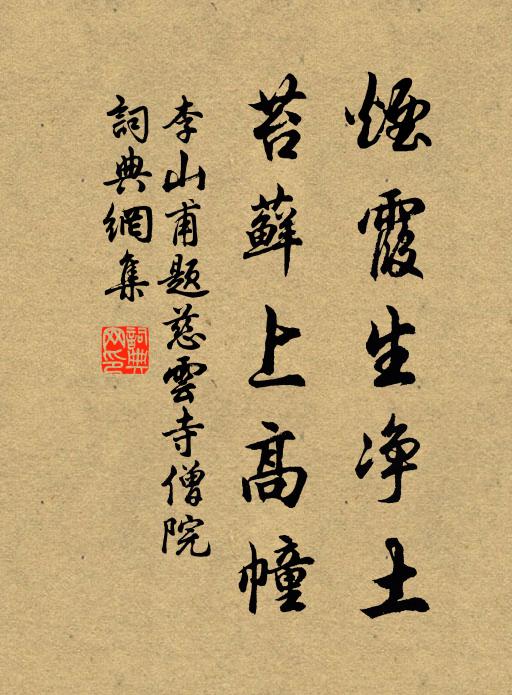 煙霞生净土
苔蘚上高幢
李山甫題慈雲寺僧院
詞典網集
詞典網印